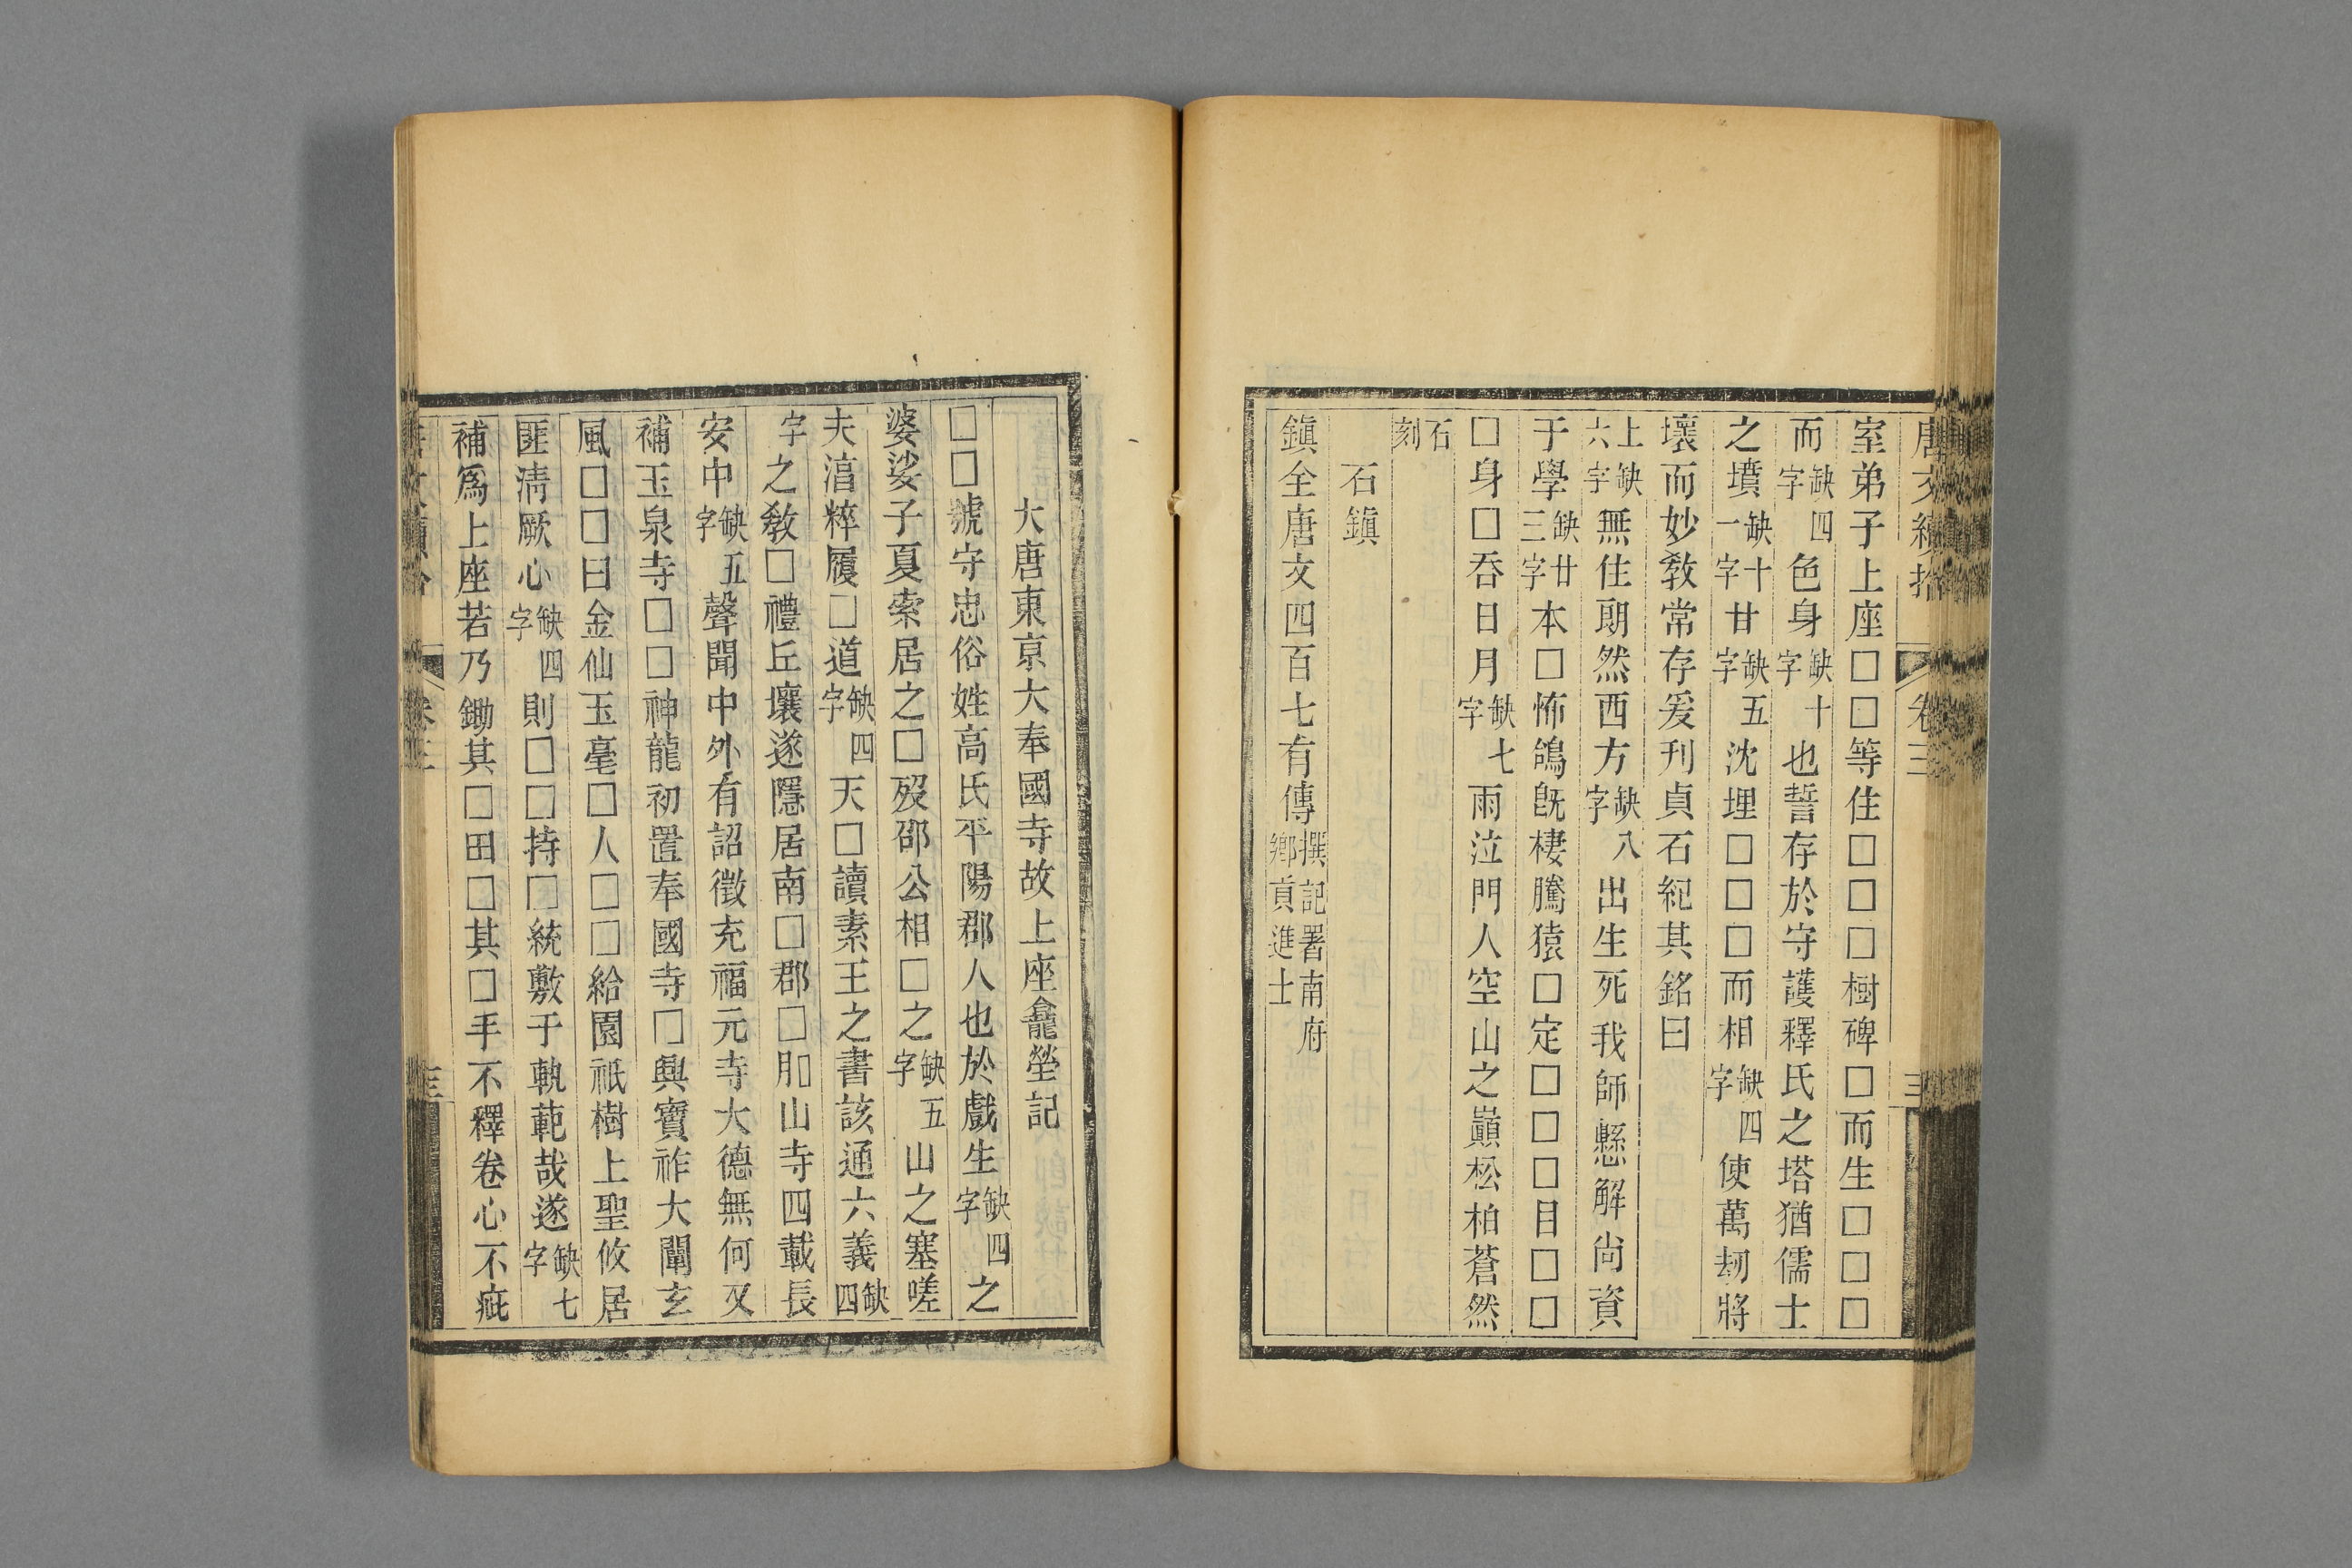 唐文續拾 卷三 三
室弟子上座□□等住□□□樹碑□而生□□□
而缺四字色身缺十字也誓存於守護釋氏之塔猶儒士
之墳缺十一字甘缺五字沈埋□□□而相缺四字使萬刼將
壞而妙敎常存爰刊貞石紀其銘曰
上缺六字無住朗然西方缺八字出生死我師懸解尙資
于學缺廿三字本□怖鴿旣棲騰猿□定□□□目□□
□身□吞日月缺七字雨泣門人空山之巓松柏蒼然
石刻
石鎮
鎮全唐文四百七有傳撰記署南府鄉貢進士
大唐東京大奉國寺故上座龕塋記
□□號守忠俗姓高氏平陽郡人也於戲生缺四字之
婆娑子夏索居之□歿邵公相□之缺五字山之塞嗟
夫湻粹履□道缺四字天□讀素王之書該通六義缺四
字之敎□禮丘壤遂隱居南□郡□月□山寺四載長
安中缺五字聲聞中外有詔徵充福元寺大德無何又
補玉泉寺□□神龍初置奉國寺□興寶祚大闡玄
風□□曰金仙玉毫□人□□給園祇樹上聖攸居
匪淸厥心缺四字則□□持□統敷于執範哉遂缺七字
補爲上座若乃鋤其□田□其□手不釋卷心不疵
卷三